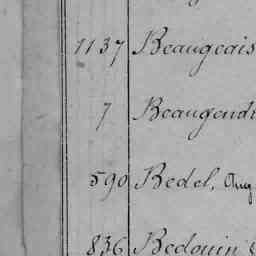 1137 Beaugeais
7 Beaugendr
590 Bedel, Aug
836 Bedouin